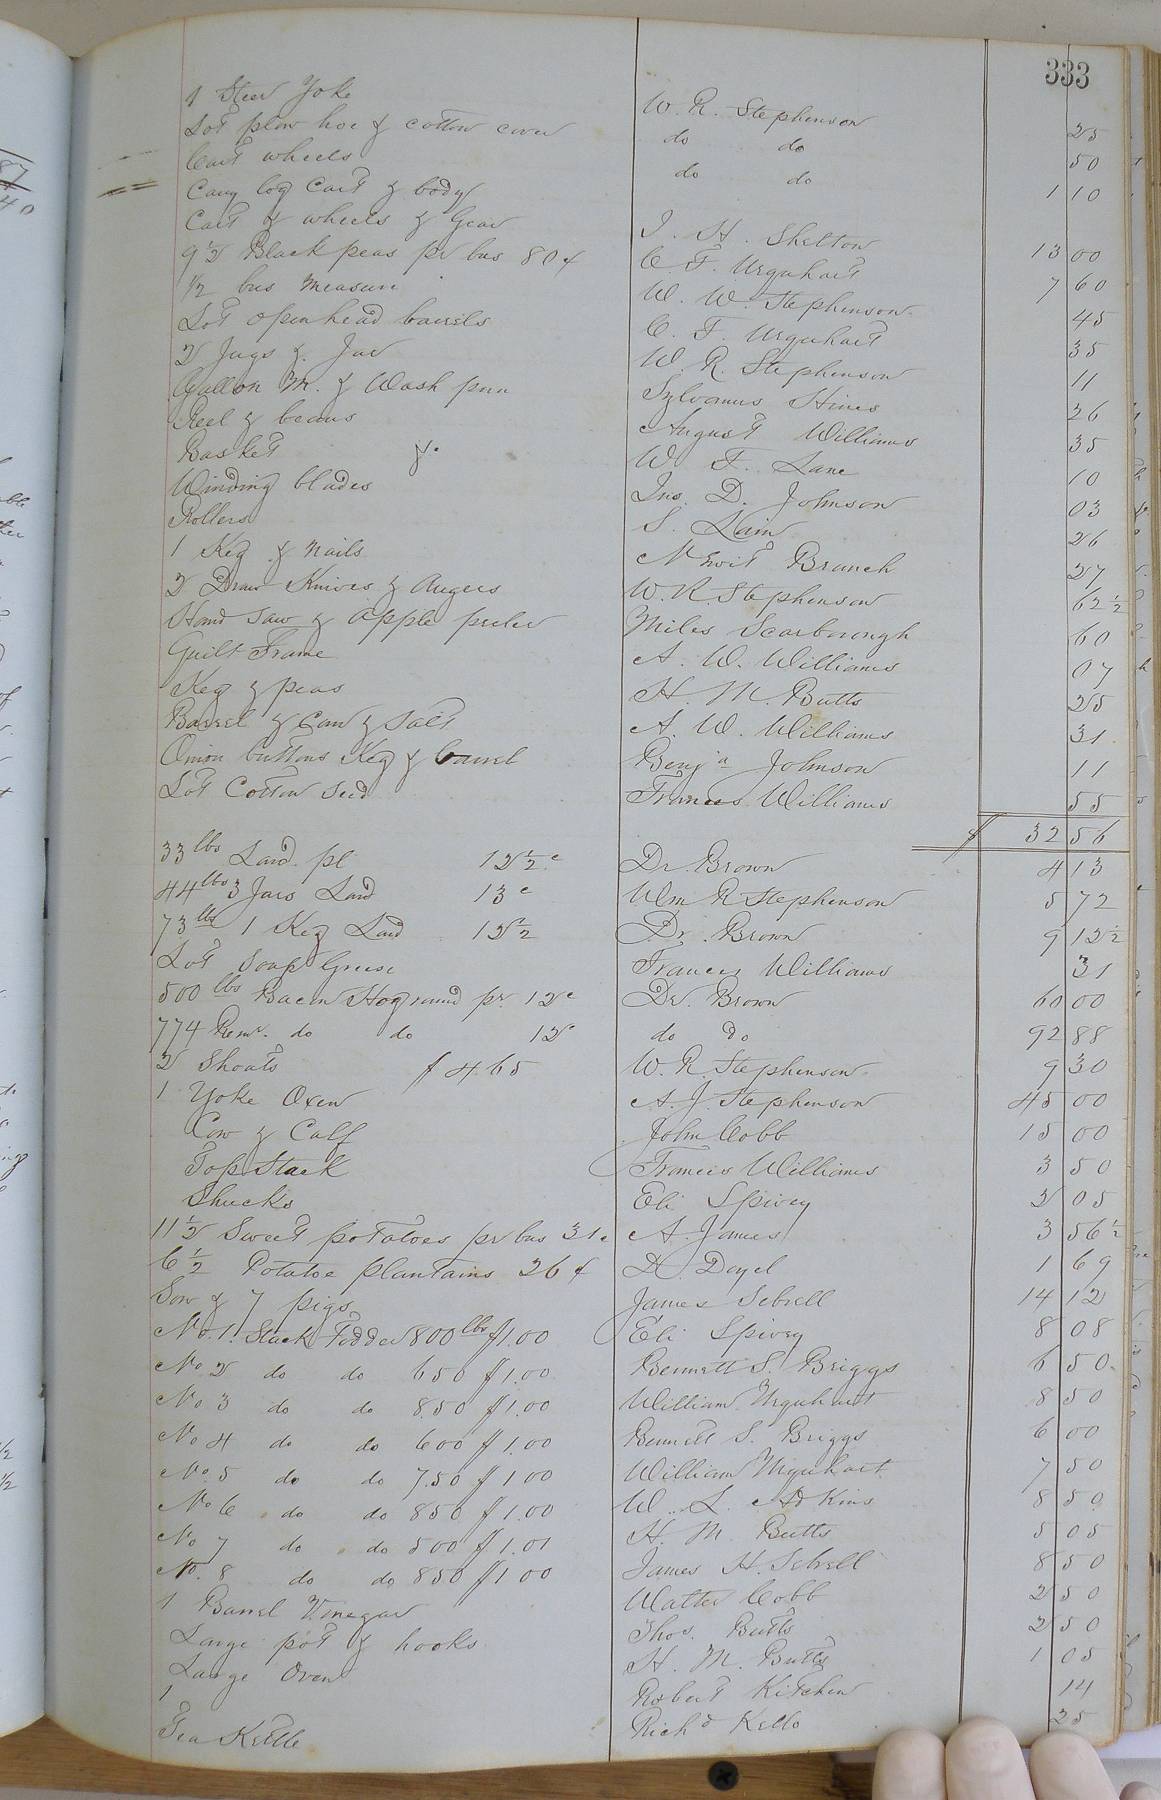 333
1 Steer Yoke W. R. Stephenson 25
Lot plow hoe & cotton cover do do 50
Cart wheels do do 1 10
Carry log Cart & body
Cart & wheels & Gear J. H. Shelton 13 00
9 1/2 Black peas pr bus 80 c C. F. Urquhart 7 60
1/2 bus measure W. W. Stephenson 45
Lot open head barrels C. F. Urquhart 35
2 Jugs & Jar W. R. Stephenson 11
Gallon M. & Wash pan Sylvanus Hines 26
Reel & beans August Williams 35
Basket &. W. F. Lane 10
Winding blades Jno. D. Johnson 03
Rollers S. Lain 26
1 Keg & nails Newit Branch 27
2 Draw Knives & Augers W. R. Stephenson 62 1/2
Hand Saw & Apple peeler Miles Scarborough 60
Quilt Frame A. W. Williams 07
Keg & peas H. M. Butts 25
Barrel & Can & Salt A. W. Williams 31
Onion buttons Keg & barrel Benj a Johnson 11
Lot Cotton Seed Frances Williams 55
$ 32 56
33 lbs Lard pl 12 1/2 c Dr. Brown 4 13
44 lbs 3 Jars Lard 13 c Wm R Stephenson 5 72
73 lbs 1 Keg Lard 12 1/2 Dr. Brown 9 12 1/2
Lot Soap Grease Frances Williams 31
500 lbs Bacon Hog round pr. 12 c Dr. Brown 60 00
774 Rem r. do do 12 c do do 92 88
2 Shoats $ 4.65 W. R. Stephenson 9 30
1 Yoke Oxen A. J. Stephenson 45 00
Cow & Calf John Cobb 15 00
Top Stack Francis Williams 3 50
Shucks Eli Spivey 2 05
11 1/2 Sweet potatoes pr bus 31 c A. James 3 56 1/2
6 1/2 Potatoe plantains 26 c D. Doyel 1 69
Sow & 7 pigs James Sebrell 14 12
No. 1. Stack Fodder 800 lbs $1.00 Eli Spivey 8 08
No 2 do do 650 $1.00 Bennett S. Briggs 6 50
No 3 do do 850 $1.00 William Urquhart 8 50
No 4 do do 600 $1.00 Bennett S. Briggs 6 00
No. 5 do do 7.50 $1 00 William Urquhart 7 50
No 6 do do 850 $1.00 W. L. Adkins 8 50
No 7 do do 500 $1.01 H. M. Butts 5 05
No. 8 do do 850 $1 00 James H. Sebrell 8 50
1 Barrel Vinegar Walter Cobb 2 50
Large pot & hooks Thos. Butts 2 50
Large Oven H. M. Butts 1 05
1 Robert Kitchen 14
Tea Kettle Rich d Kello 25